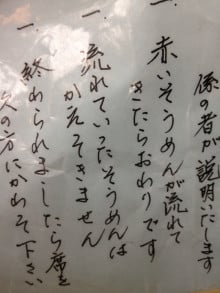 係の者が説明いたします
一、赤いそうめんが流れて
きたらおわりです
一、流れていったそうめんは
かえってきません
一、終められましたら席を
次の方にかわって下さい